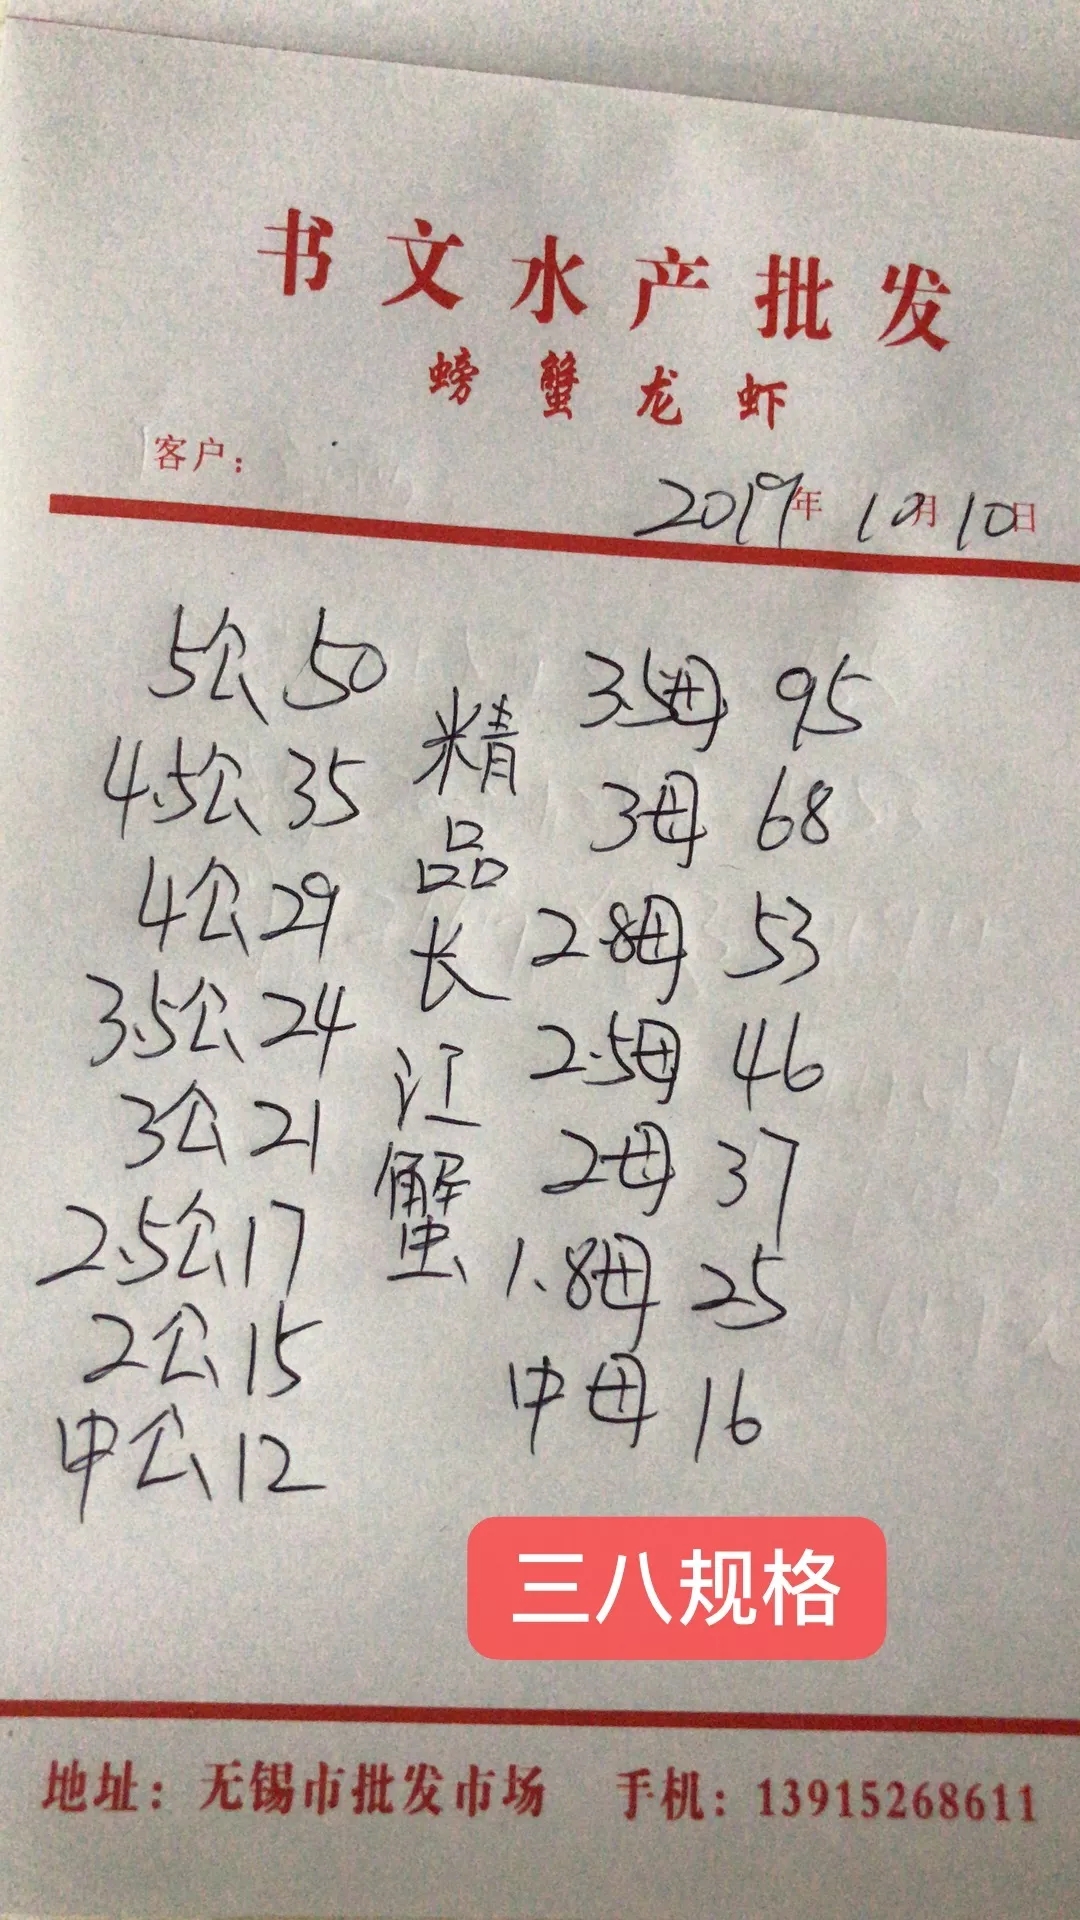 书文水产批发
螃蟹龙虾
客户：
2019年10月10日
5公 50
4.5公 35
4公 29
3.5公 24
3公 21
2.5公 17
2公 15
中公 12
精品长江蟹
3.5母 95
3母 68
2.8母 53
2.5母 46
2母 37
1.8母 25
中母 16
三八规格
地址：无锡市批发市场 手机：13915268611